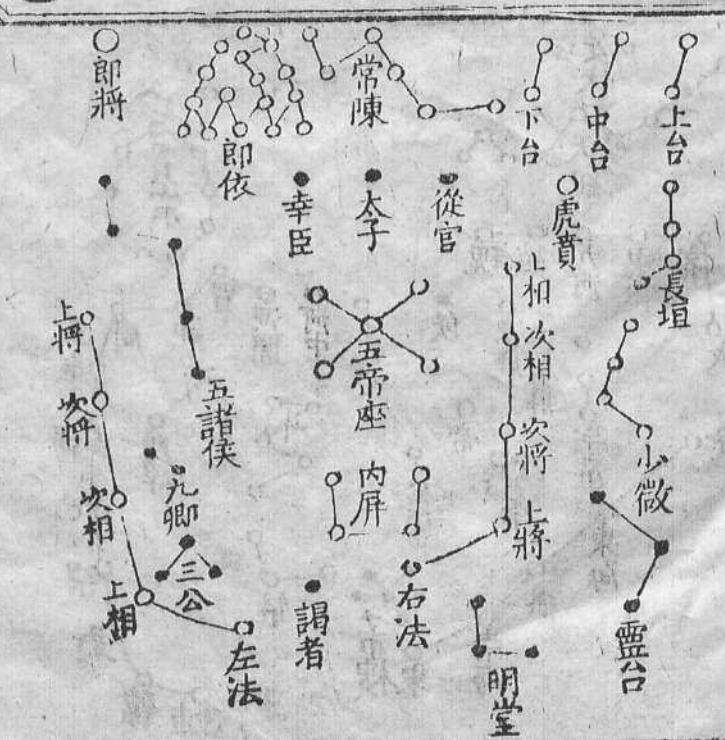 上台
中台
下台
常陳
郎依
郎將
長垣
虎賁
從官
太子
幸臣
少微
上相
次相
次將
上將
五帝座
五諸侯
上將
次將
次相
上相
內屏
九卿
三公
靈台
明堂
右法
謁者
左法